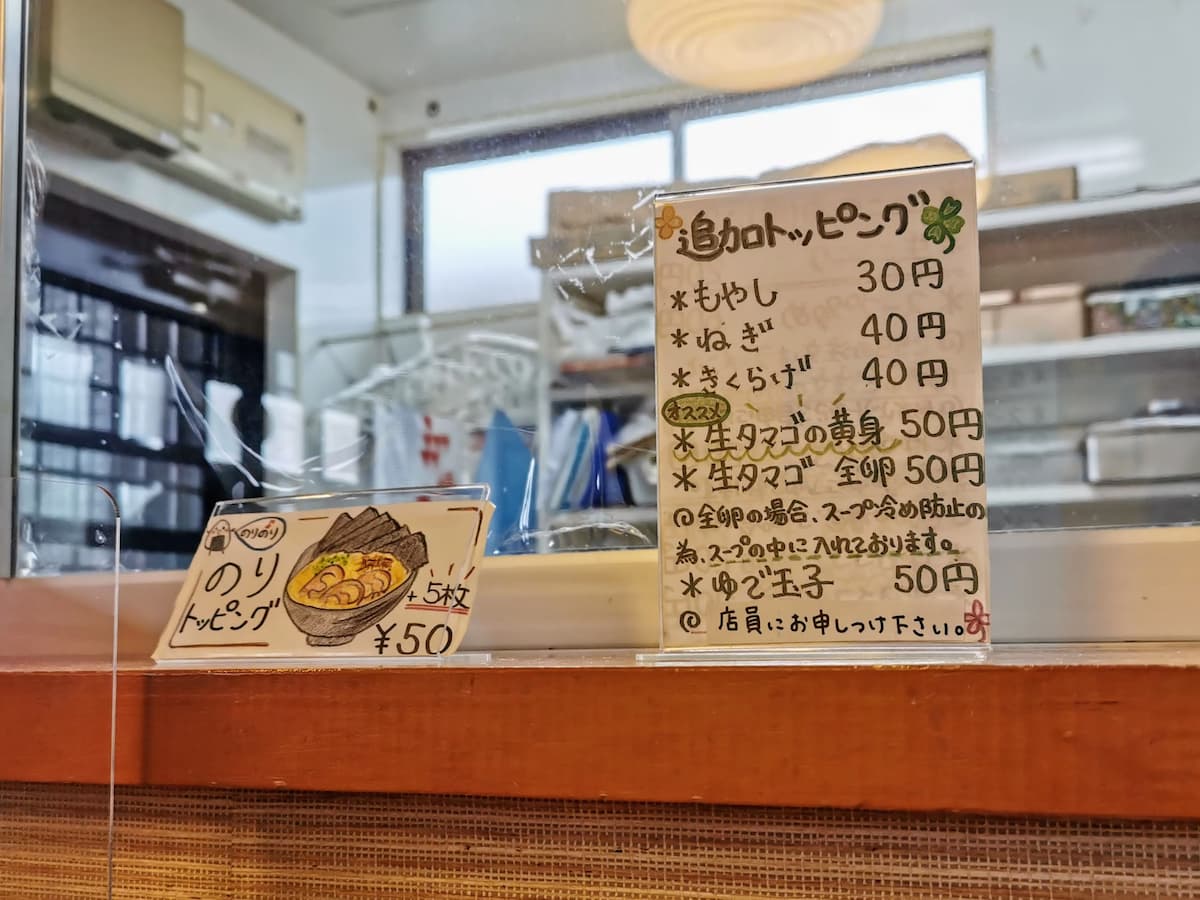 追加トッピング
*もやし 30円
*ねぎ 40円
*きくらげ 40円
オススメ
*生タマゴの黄身 50円
*生タマゴ 全卵 50円
◎全卵の場合、スープ冷め防止の
為、スープの中に入れております。
*ゆで玉子 50円
◎店員にお申しつけ下さい。
のりのり
のり
トッピング
+5枚
¥50